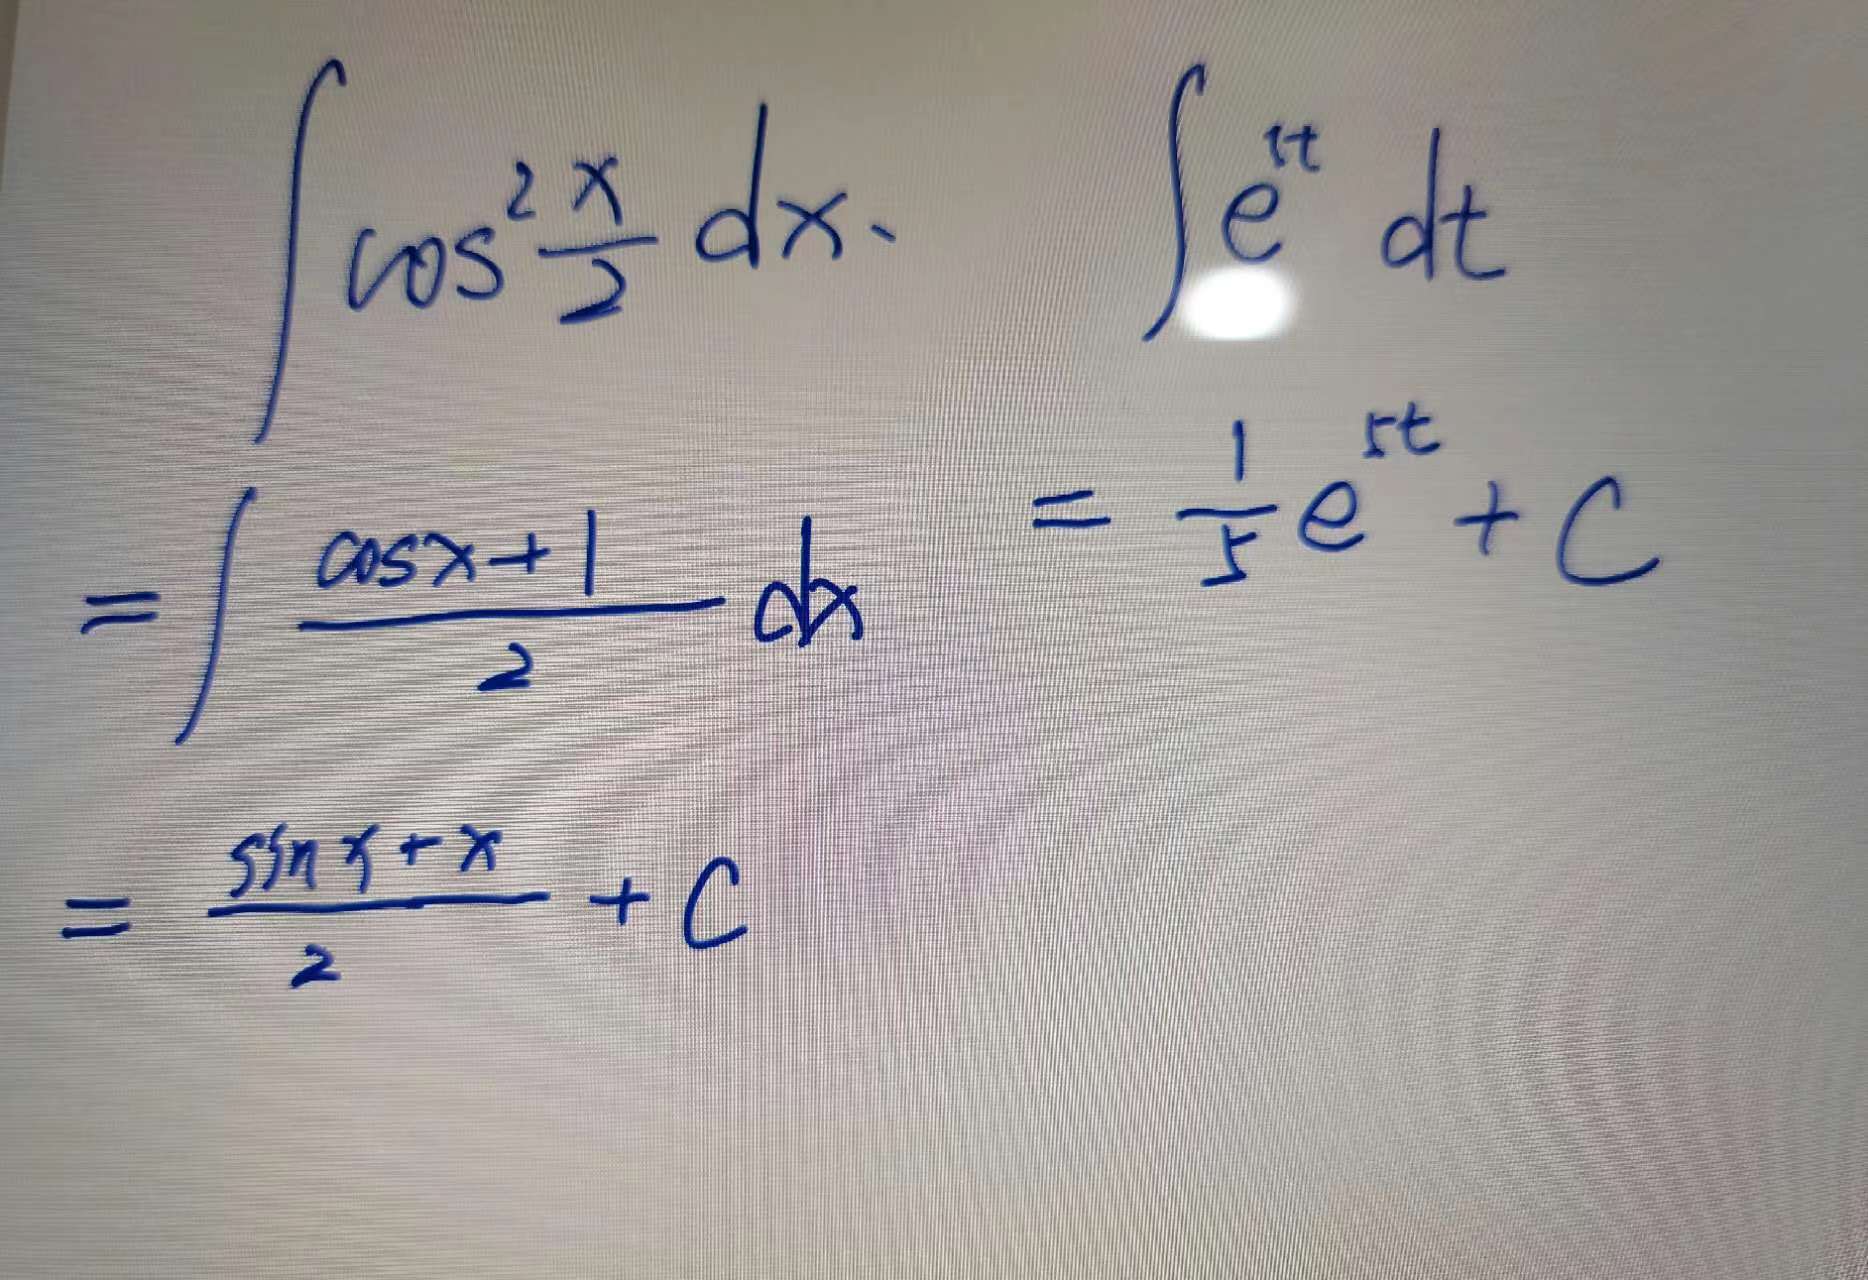 ∫ cos² x/2 dx.
= ∫ (cosx+1)/2 dx
= (sin x + x)/2 + C
∫ e^5t dt
= 1/5 e^5t + C